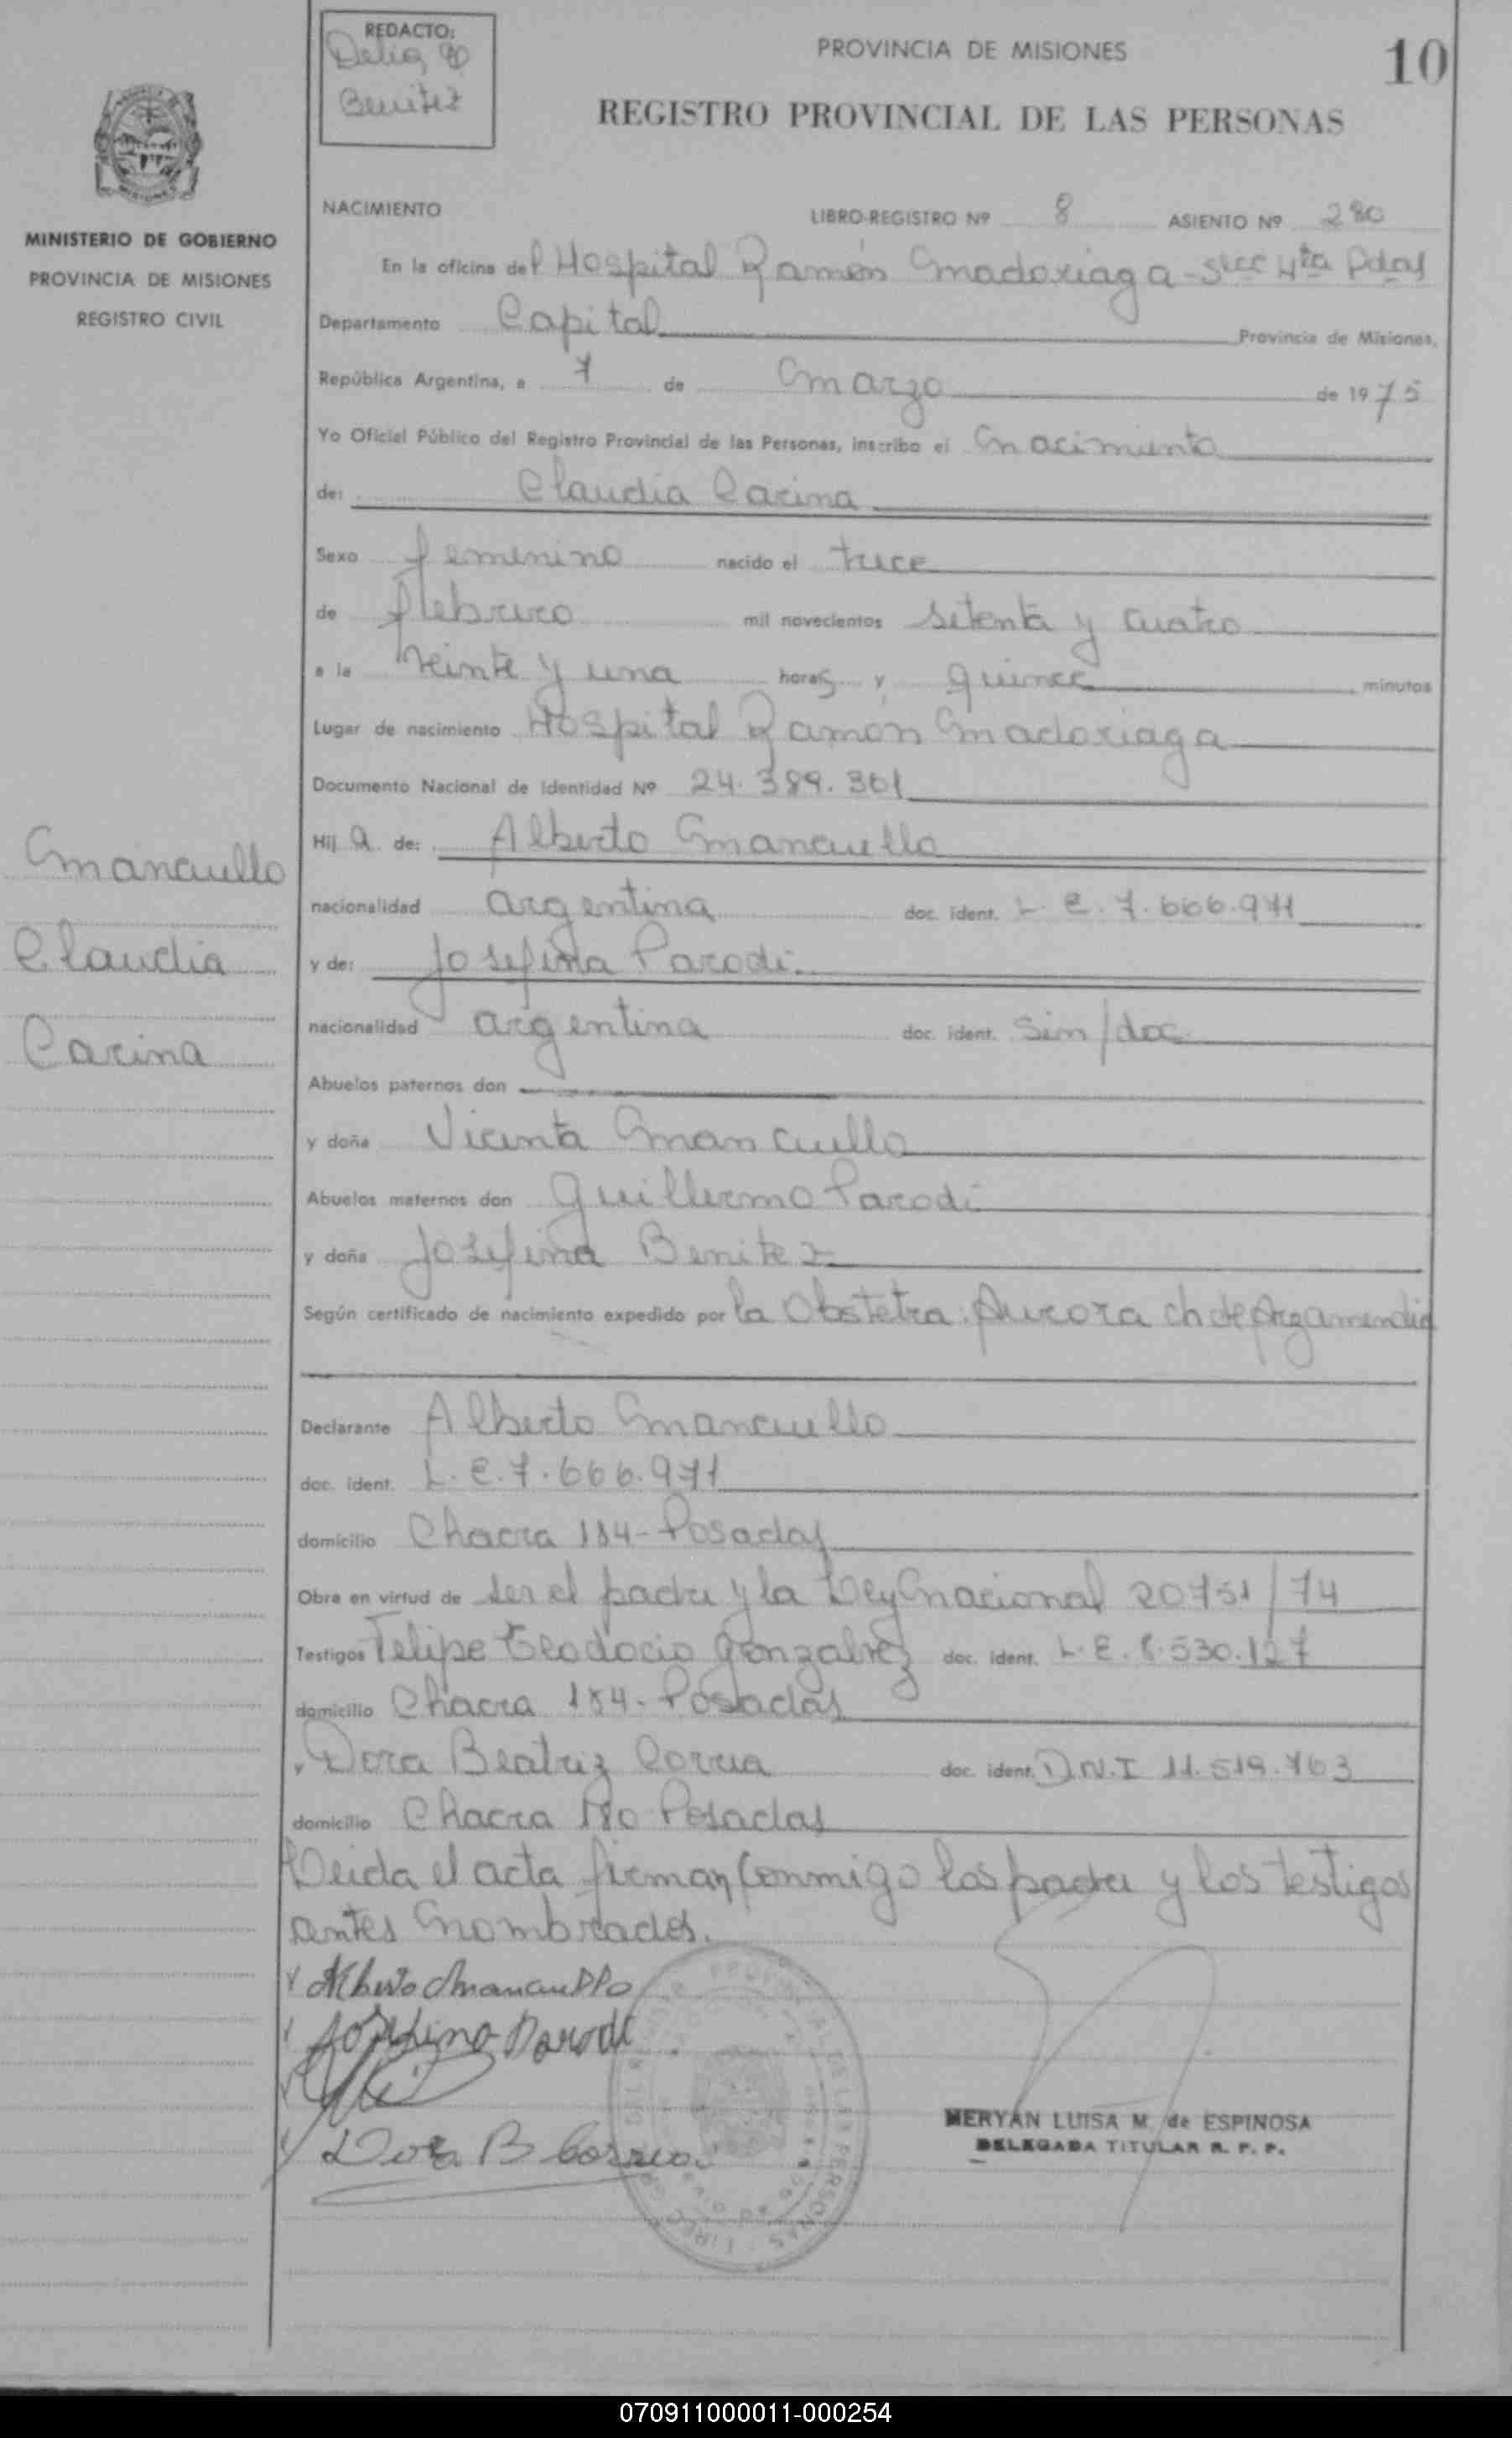 REDACTO:
Delia
Benitez
PROVINCIA DE MISIONES
10
REGISTRO PROVINCIAL DE LAS PERSONAS
MINISTERIO DE GOBIERNO
PROVINCIA DE MISIONES
REGISTRO CIVIL
NACIMIENTO LIBRO-REGISTRO Nº 8 ASIENTO Nº 280
En la oficina del Hospital Ramón Madariaga - Secc 4ta Pdas
Departamento Capital Provincia de Misiones,
República Argentina, a 7 de Marzo de 1975
Yo Oficial Público del Registro Provincial de las Personas, inscribo el Nacimiento
de: Claudia Carina
Sexo femenino nacido el trece
de febrero mil novecientos setenta y cuatro
a la veinte y una horas y quince minutos
Lugar de nacimiento Hospital Ramón Madariaga
Documento Nacional de Identidad Nº 24.389.301
Hij a de: Alberto Mancuello
nacionalidad argentina doc. ident. L.E. 7.666.971
y de: Josefina Parodi
nacionalidad argentina doc. ident. Sin/doc
Abuelos paternos don
y doña Vicenta Mancuello
Abuelos maternos don Guillermo Parodi
y doña Josefina Benitez
Según certificado de nacimiento expedido por la Obstetra: Aurora Ch de Argamendia
Declarante Alberto Mancuello
doc. ident. L.E. 7.666.971
domicilio Chacra 184 - Posadas
Obra en virtud de ser el padre y la Ley Nacional 20751/74
Testigos Felipe Teodocio Gonzalvez doc. ident. L.E. 8.530.127
domicilio Chacra 184 - Posadas
y Dora Beatriz Correa doc. ident. D.N.I 11.519.763
domicilio Chacra 180 Posadas
Leida el acta firman Conmigo los padre y los testigos
antes Nombrados.
Alberto Mancuello
Josefina Parodi
Dora B Correa
MERYAN LUISA M. de ESPINOSA
DELEGADA TITULAR R. P. P.
Mancuello
Claudia
Carina
070911000011-000254